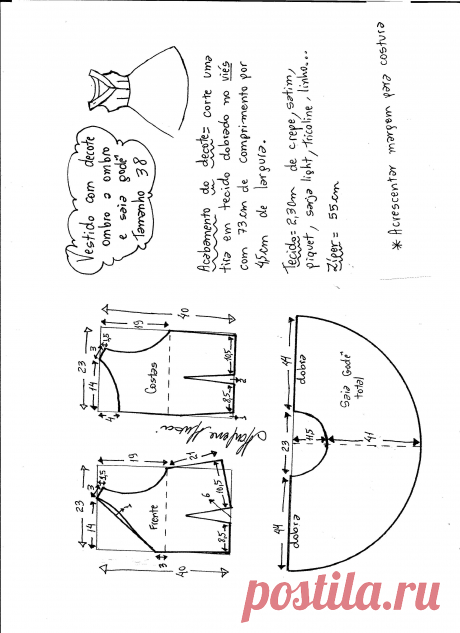 Vestido com decote
ombro a ombro
e saia godê
Tamanho 38
Acabamento do decote= corte uma
tira em tecido dobrado no viés
com 73cm de comprimento por
4,5cm de largura.
Tecido= 2,30m de crepe, satim,
piquet, sarja light, tricoline, linho...
Zíper= 55cm
* Acrescentar margem para costura
23
14
3
1,5
1
19
21
Frente
6
10,5
8,5
3
40
Marlene Mukai
23
14
3
1,5
4
19
40
Costas
10,5
8,5
2
1
44
23
44
dobra
dobra
11,5
41
Saia Godê
total
postila.ru